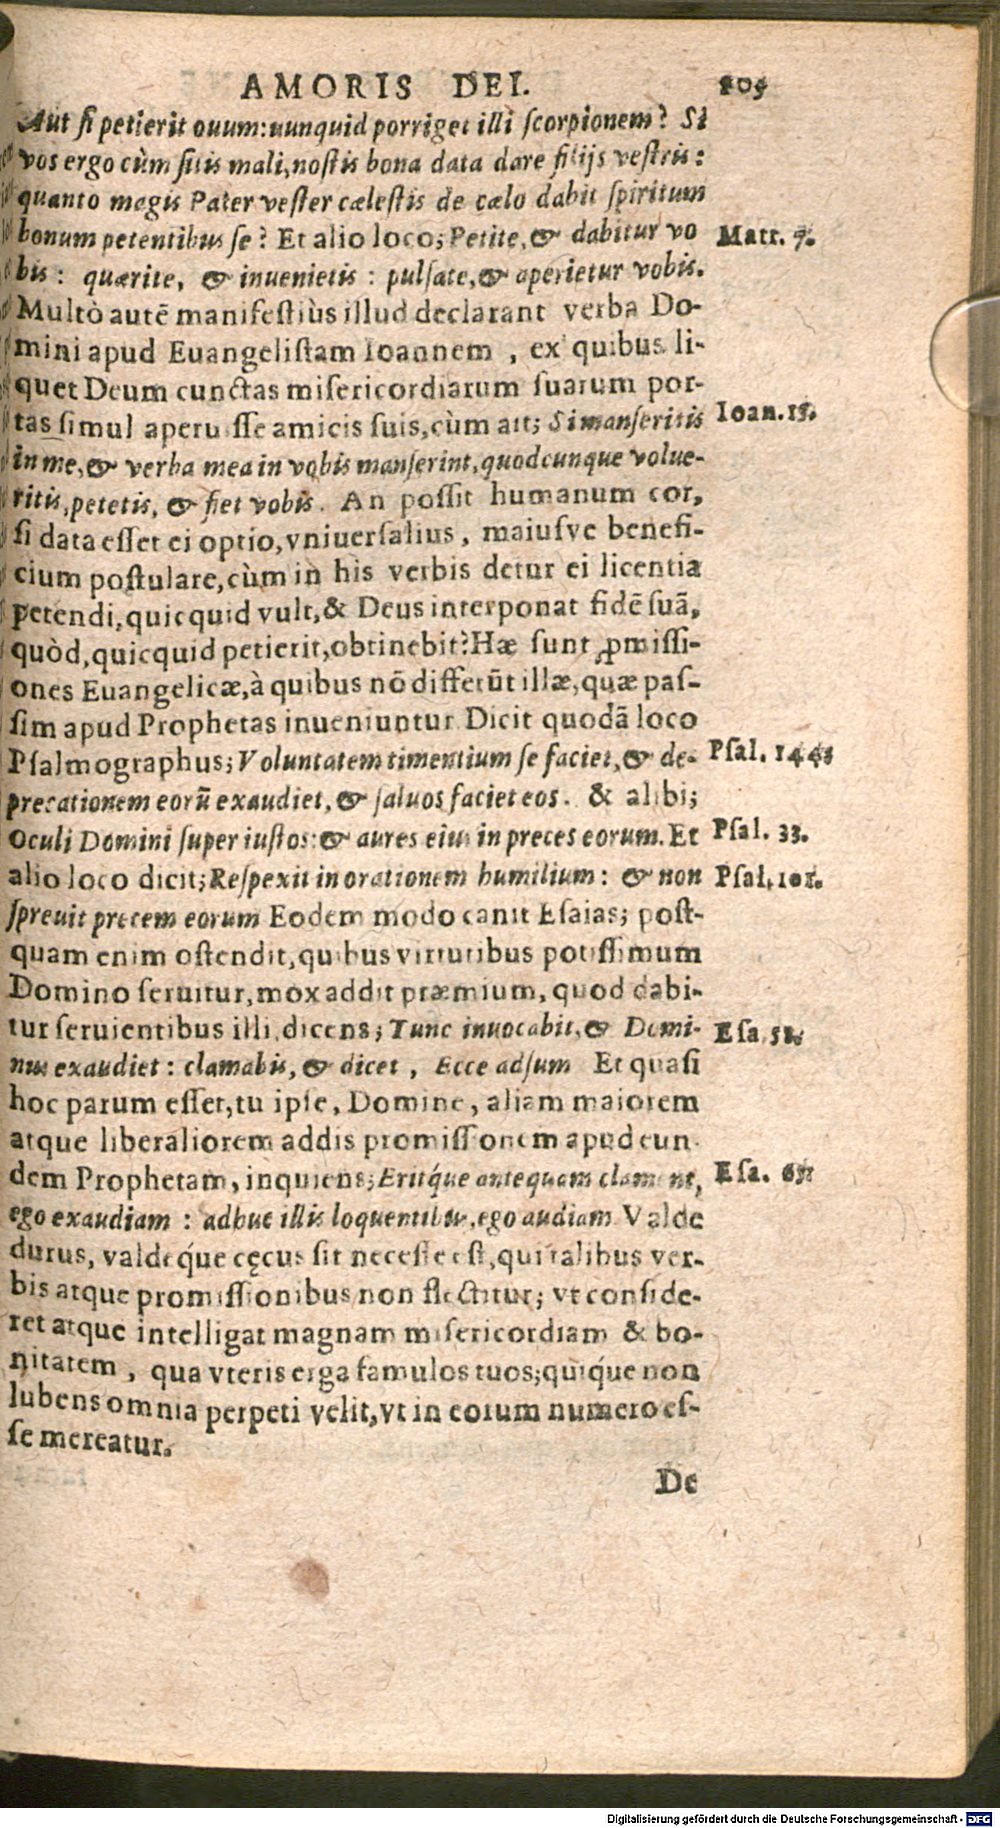 AMORIS DEI. 205
Aut ſi petierit ouum: nunquid porriget illi ſcorpionem? Si
vos ergo cùm ſitis mali, noſtis bona data dare filijs veſtris:
quanto magis Pater veſter cæleſtis de cælo dabit ſpiritum
bonum petentibus ſe? Et alio loco; Petite, & dabitur vo
Matt. 7.
bis: quærite, & inuenietis: pulſate, & aperietur vobis.
Multò autē manifeſtiùs illud declarant verba Do-
mini apud Euangeliſtam Ioannem, ex quibus li-
quet Deum cunctas miſericordiarum ſuarum por-
tas ſimul aperuiſſe amicis ſuis, cùm ait; Si manſeritis
Ioan. 15.
in me, & verba mea in vobis manſerint, quodcunque volue-
ritis, petetis, & fiet vobis. An poſſit humanum cor,
ſi data eſſet ei optio, vniuerſalius, maiuſve benefi-
cium poſtulare, cùm in his verbis detur ei licentia
petendi, quicquid vult, & Deus interponat fidē ſuā,
quòd, quicquid petierit, obtinebit? Hæ ſunt ꝓmiſſi-
ones Euangelicæ, à quibus nō differūt illæ, quæ paſ-
ſim apud Prophetas inueniuntur. Dicit quodā loco
Pſalmographus; Voluntatem timentium ſe faciet, & de-
Pſal. 144.
precationem eorū exaudiet, & ſaluos faciet eos. & alibi;
Oculi Domini ſuper iuſtos: & aures eius in preces eorum. Et
Pſal. 33.
alio loco dicit; Reſpexit in orationem humilium: & non
Pſal. 101.
ſpreuit precem eorum Eodem modo canit Eſaias; poſt-
quam enim oſtendit, quibus virtutibus potiſſimum
Domino ſeruitur, mox addit præmium, quod dabi-
tur ſeruientibus illi, dicens; Tunc inuocabis, & Domi-
Eſa. 58.
nus exaudiet: clamabis, & dicet, Ecce adſum Et quaſi
hoc parum eſſet, tu ipſe, Domine, aliam maiorem
atque liberaliorem addis promiſſionem apud eun
dem Prophetam, inquiens; Eritq́ue antequam clament,
Eſa. 65.
ego exaudiam: adhuc illis loquentibus, ego audiam Valde
durus, valdeq́ue cęcus ſit neceſſe eſt, qui talibus ver-
bis atque promiſſionibus non flectitur; vt conſide-
ret atque intelligat magnam miſericordiam & bo-
nitatem, qua vteris erga famulos tuos; quiq́ue non
lubens omnia perpeti velit, vt in eorum numero eſ-
ſe mereatur.
De
Digitalisierung gefördert durch die Deutsche Forschungsgemeinschaft - DFG